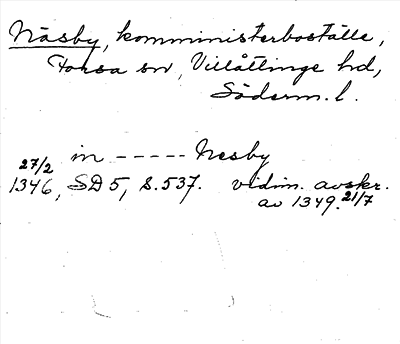 Näsby, komministerboställe,
Forsa sn, Villåttinge hd,
Söderm. l.
in ----- Nesby
27/2
1346, SD 5, s. 537. vidim. avskr.
av 1349. 21/7